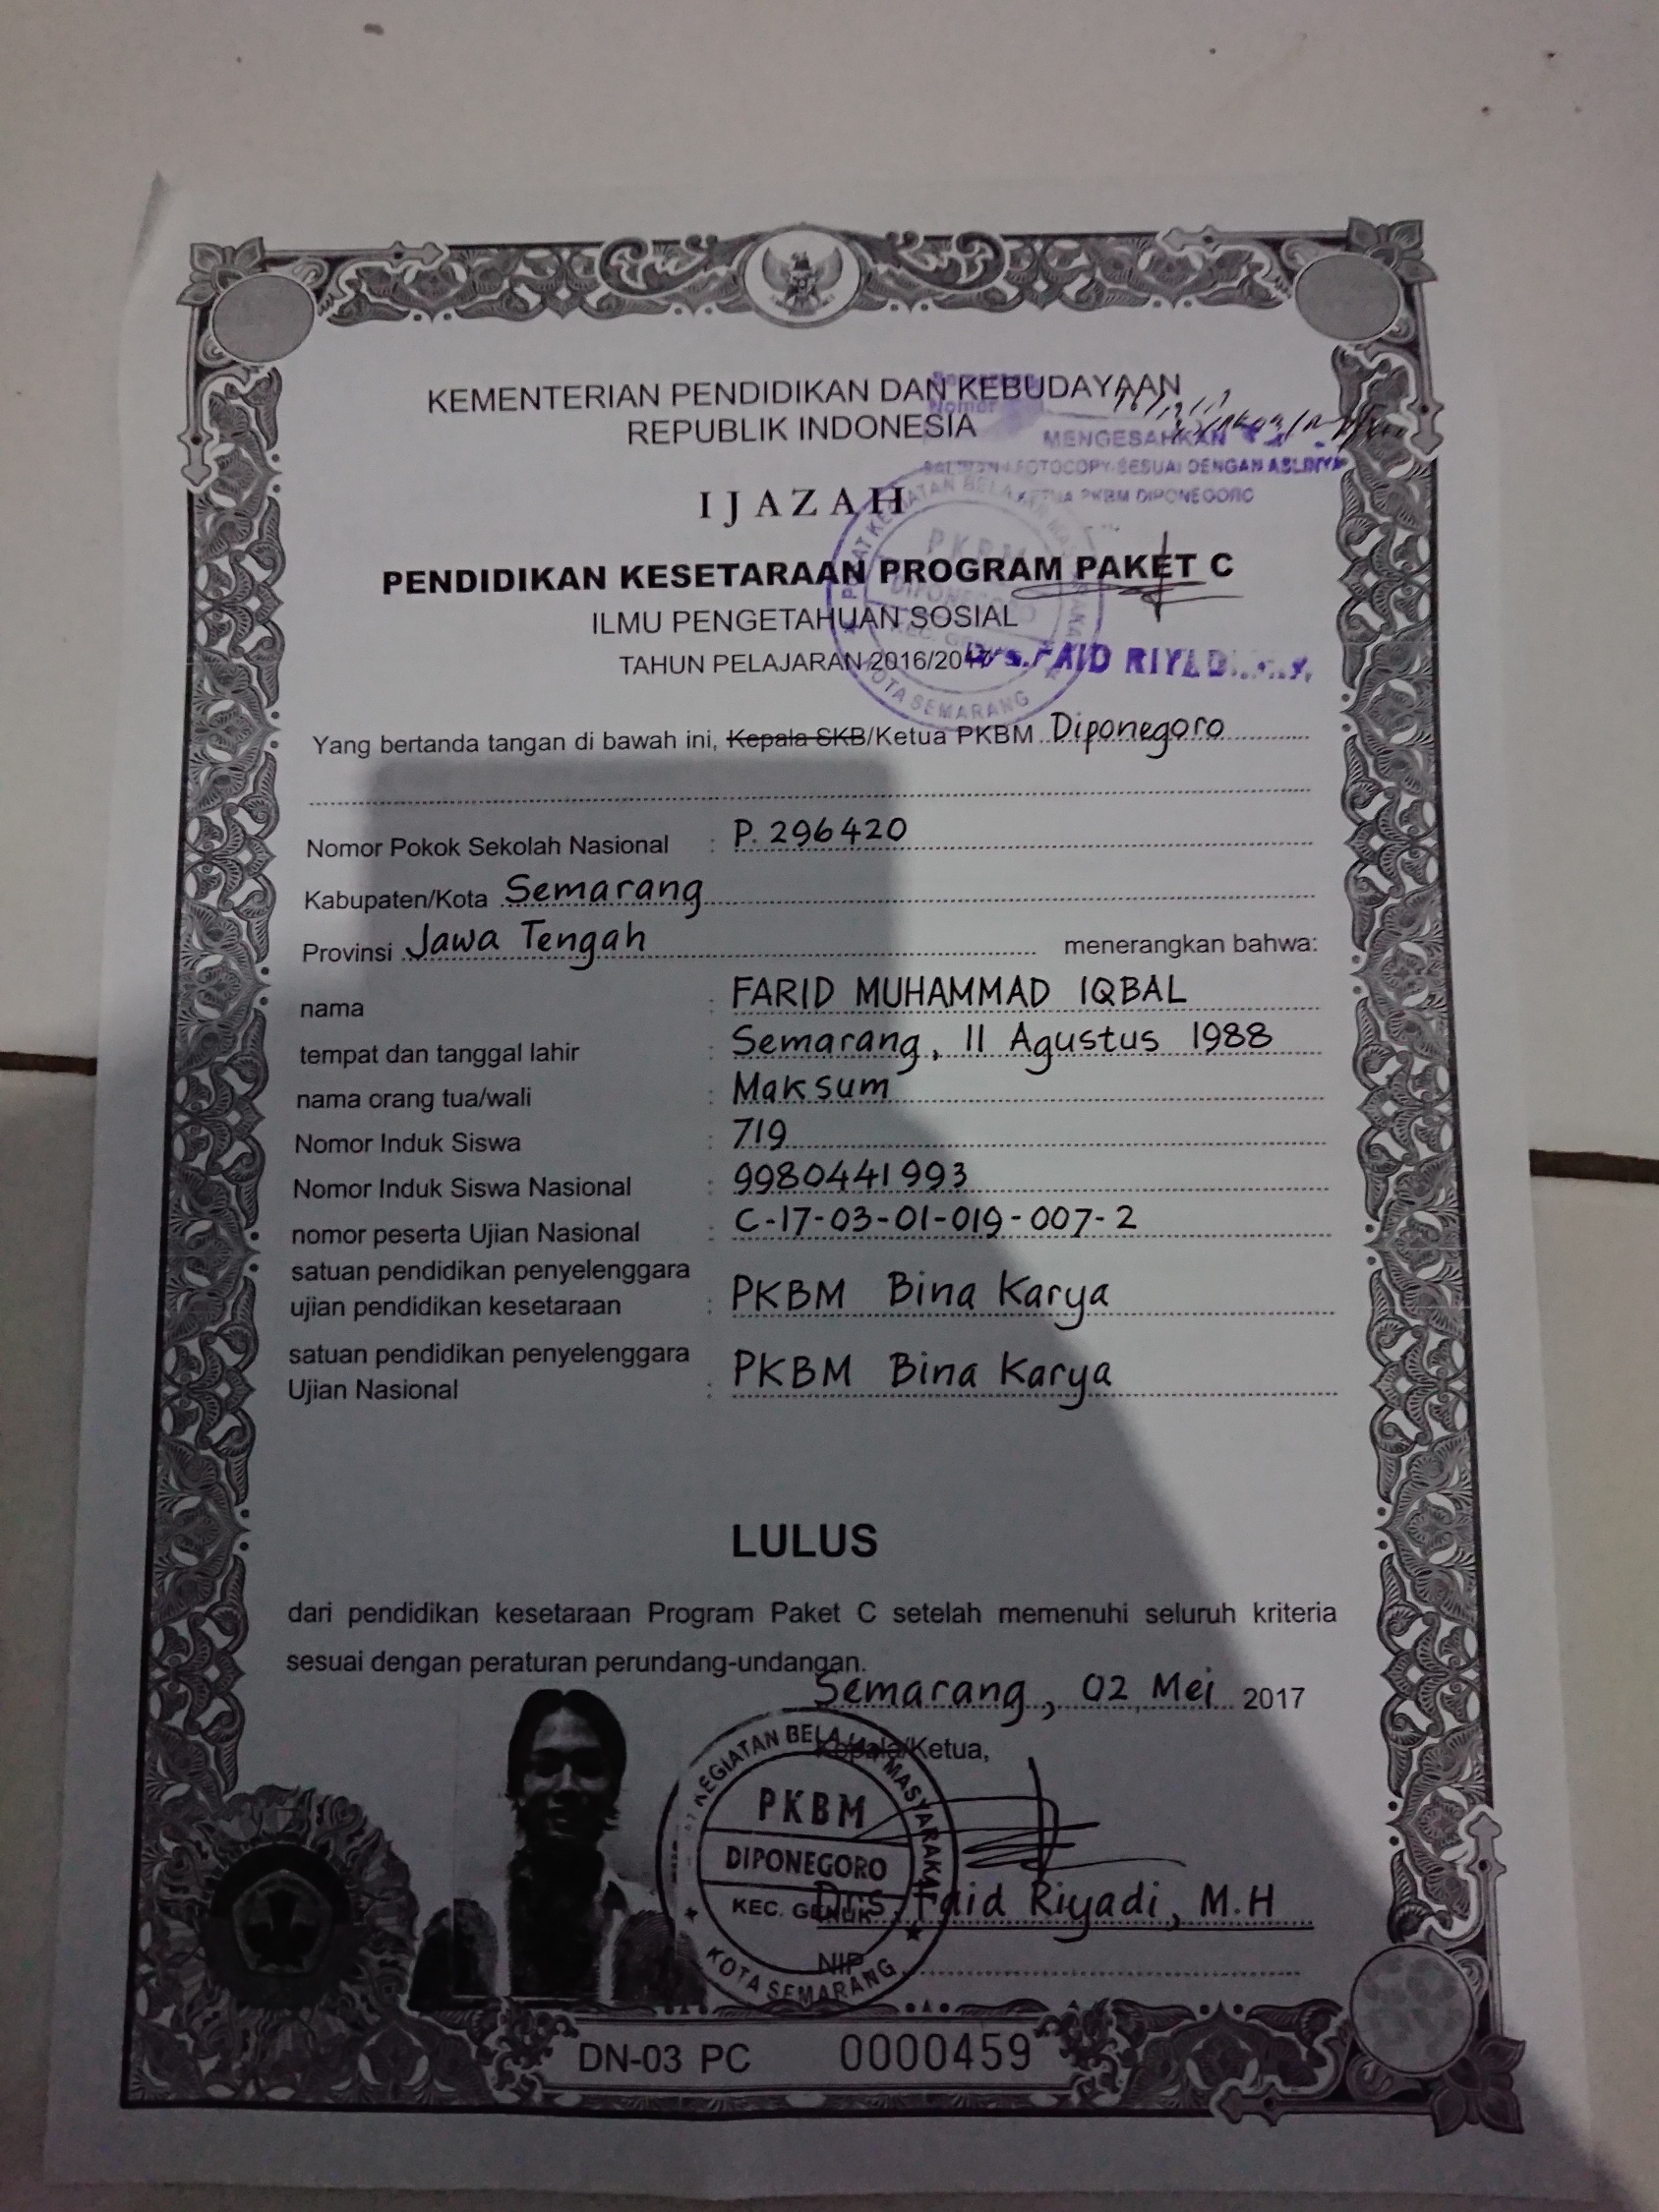 KEMENTERIAN PENDIDIKAN DAN KEBUDAYAAN
REPUBLIK INDONESIA
Nomor
MENGESAHKAN
FOTOCOPY SESUAI DENGAN ASLINYA
KETUA PKBM DIPONEGORO
IJAZAH
PENDIDIKAN KESETARAAN PROGRAM PAKET C
ILMU PENGETAHUAN SOSIAL
TAHUN PELAJARAN 2016/2017
Drs. FAID RIYADI
PKBM
DIPONEGORO
KOTA SEMARANG
Yang bertanda tangan di bawah ini, Kepala SKB/Ketua PKBM Diponegoro
Nomor Pokok Sekolah Nasional : P. 296420
Kabupaten/Kota Semarang
Provinsi Jawa Tengah menerangkan bahwa:
nama : FARID MUHAMMAD IQBAL
tempat dan tanggal lahir : Semarang, 11 Agustus 1988
nama orang tua/wali : Maksum
Nomor Induk Siswa : 719
Nomor Induk Siswa Nasional : 9980441993
nomor peserta Ujian Nasional : C-17-03-01-019-007-2
satuan pendidikan penyelenggara
ujian pendidikan kesetaraan : PKBM Bina Karya
satuan pendidikan penyelenggara
Ujian Nasional : PKBM Bina Karya
LULUS
dari pendidikan kesetaraan Program Paket C setelah memenuhi seluruh kriteria
sesuai dengan peraturan perundang-undangan.
Semarang, 02 Mei 2017
Kepala/Ketua,
KEGIATAN BELAJAR MASYARAKAT
PKBM
DIPONEGORO
KEC. GENUK
KOTA SEMARANG
Drs. Faid Riyadi, M.H
NIP
DN-03 PC 0000459